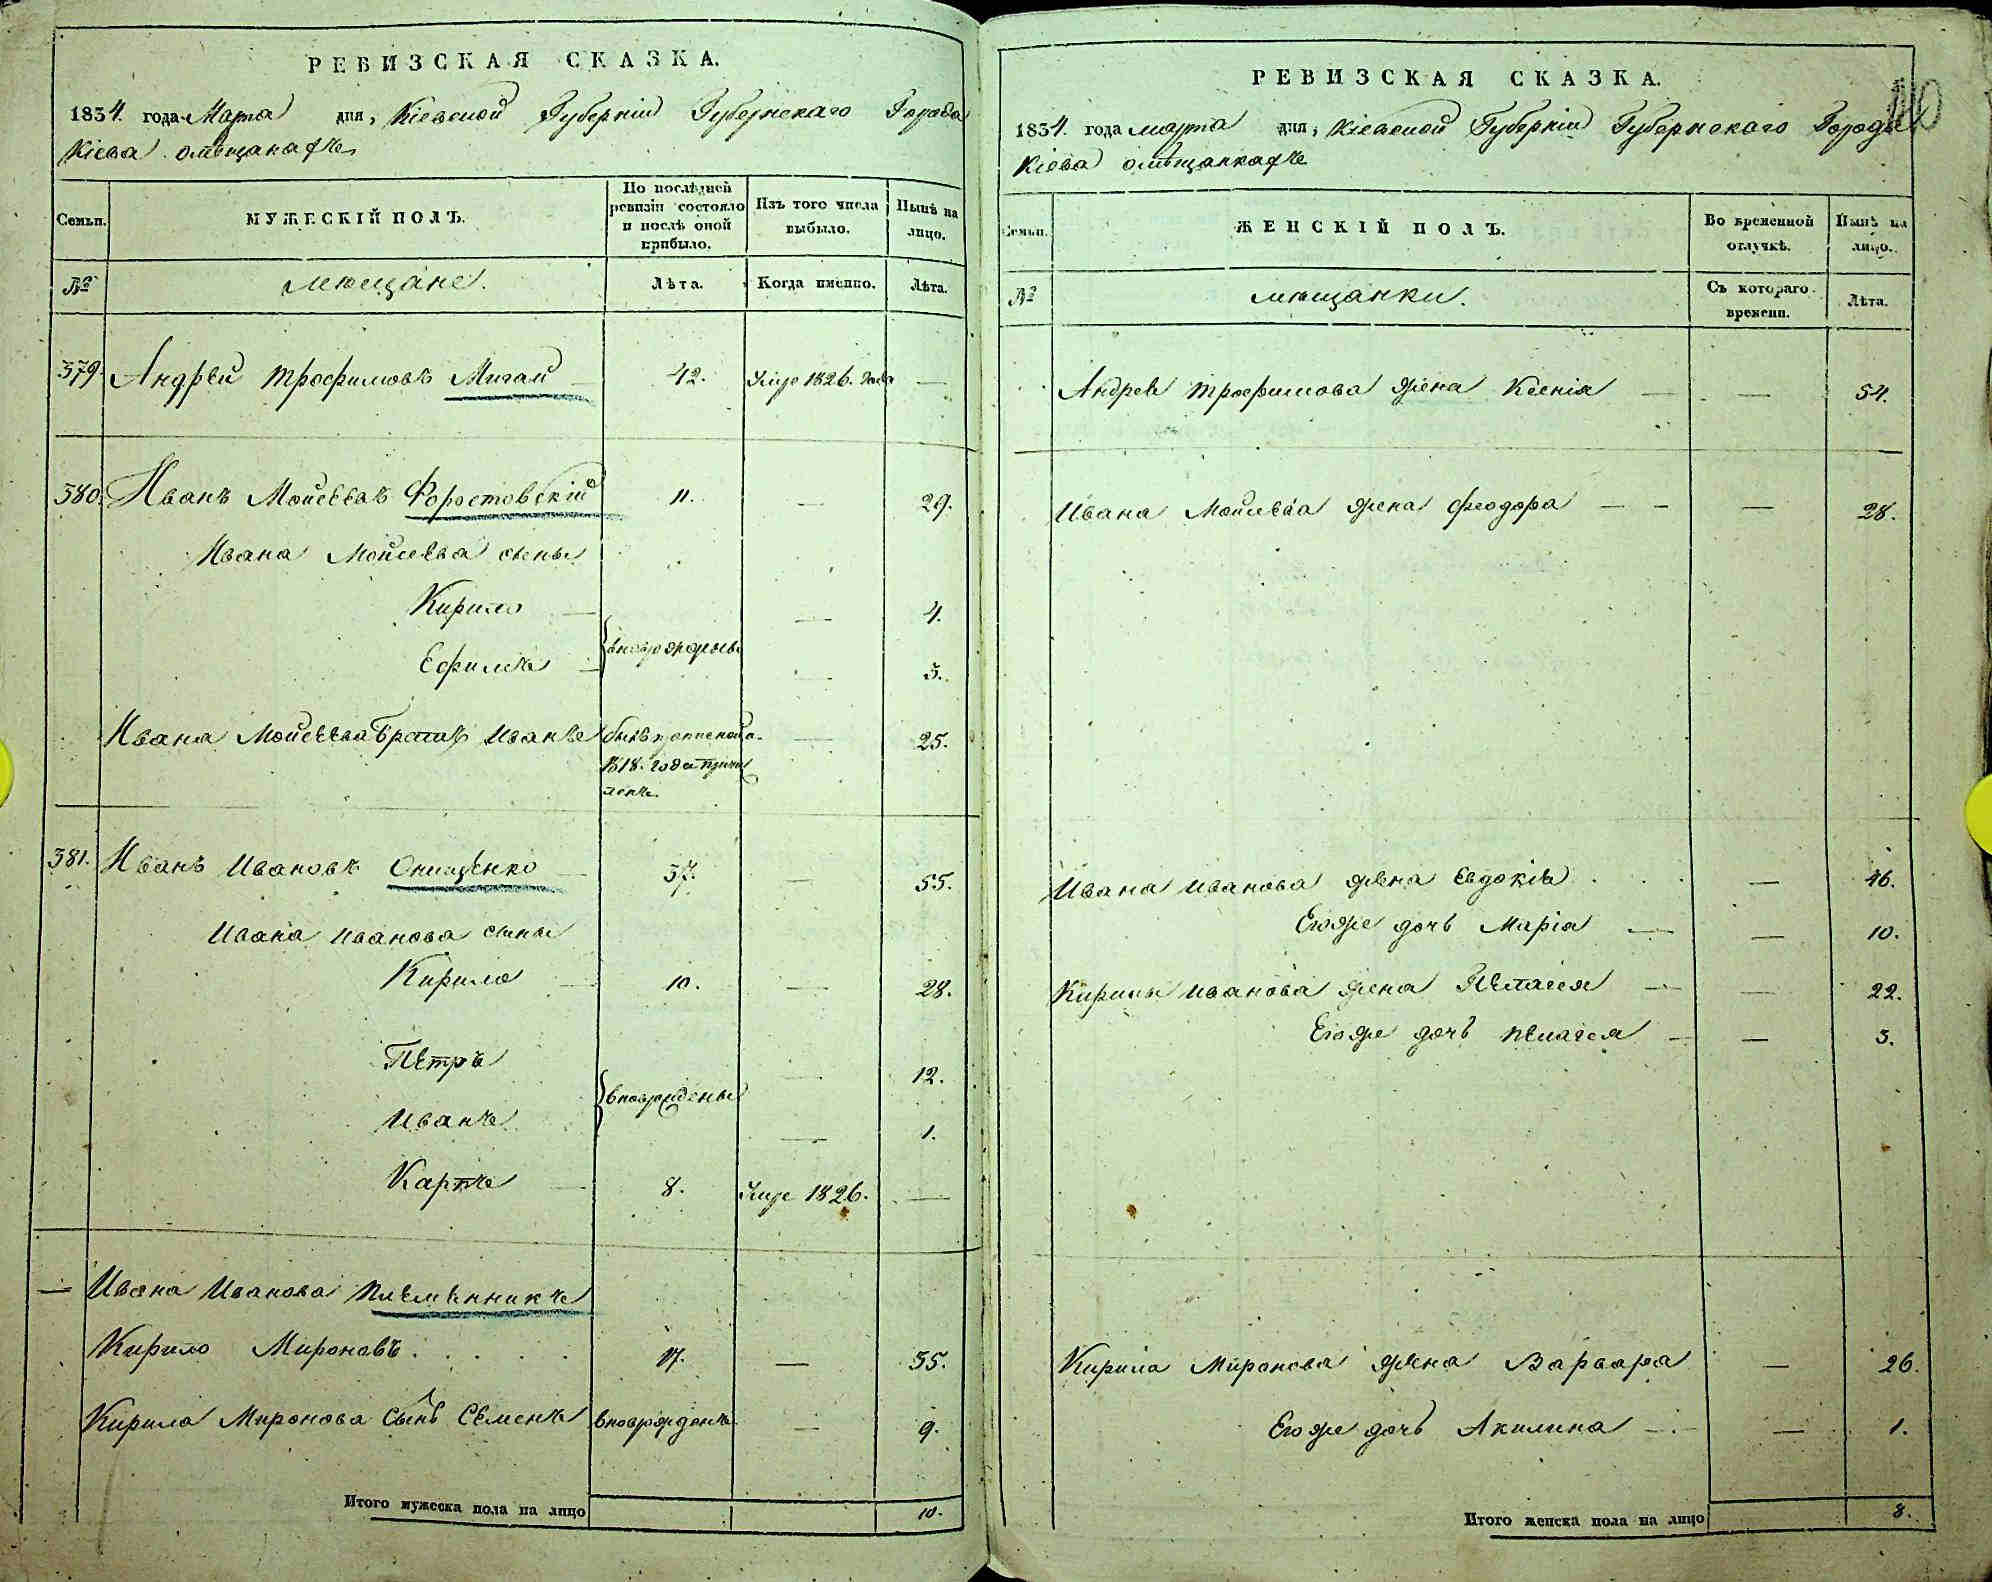 РЕВИЗСКАЯ СКАЗКА.
1834. года Марта дня, Кіевской Губерніи Губернскаго Города
Кіева омѣщанахъ
Семьи.
МУЖЕСКІЙ ПОЛЪ.
По послѣдней
ревизіи состояло
и послѣ оной
прибыло.
Изъ того числа
выбыло.
Нынѣ на
лицо.
№
мѣщане.
Лѣта.
Когда именно.
Лѣта.
379. Андрей Трофимовъ 42. Умре 1826. года —
380. Иванъ Мойсеевъ Форостовскій 11. — 29.
Ивана Мойсеева сыны
Кирило — 4.
вновьрождены
Ефимъ — 3.
Ивана Мойсеева братъ Иванъ — 25.
1818. года
381. Иванъ Ивановъ Онищенко 37. — 55.
Ивана Иванова сыны
Кирило 10. — 28.
Петръ — 12.
вноврождены
Иванъ — 1.
Карпъ 8. Умре 1826. —
— Ивана Иванова племенникъ
Кирило Мироновъ. 17. — 35.
Кирила Миронова сынъ Семенъ вноврожденъ — 9.
Итого мужеска пола на лицо 10.
РЕВИЗСКАЯ СКАЗКА.
1834. года марта дня, Кіевской Губерніи Губернскаго Города
Кіева омѣщанкахъ
Семьи.
ЖЕНСКІЙ ПОЛЪ.
Во временной
отлучкѣ.
Нынѣ на
лицо.
№
мѣщанки.
Съ котораго
времени.
Лѣта.
Андрея Трофимова жена Ксенія — — 54.
Ивана Мойсеева жена Феодора — — — 28.
Ивана Иванова жена Евдокія — 46.
Егоже дочь Марія — — 10.
Кирилы Иванова жена — — 22.
Егоже дочь Пелагея — — 3.
Кирила Миронова жена Варвара — 26.
Егоже дочь Акилина — — 1.
Итого женска пола на лицо 8.